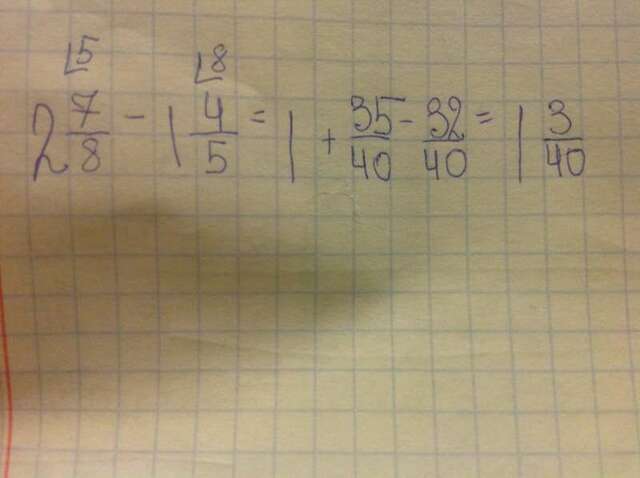 ⌊5 ⌊8
2 7/8 - 1 4/5 = 1 + 35/40 - 32/40 = 1 3/40